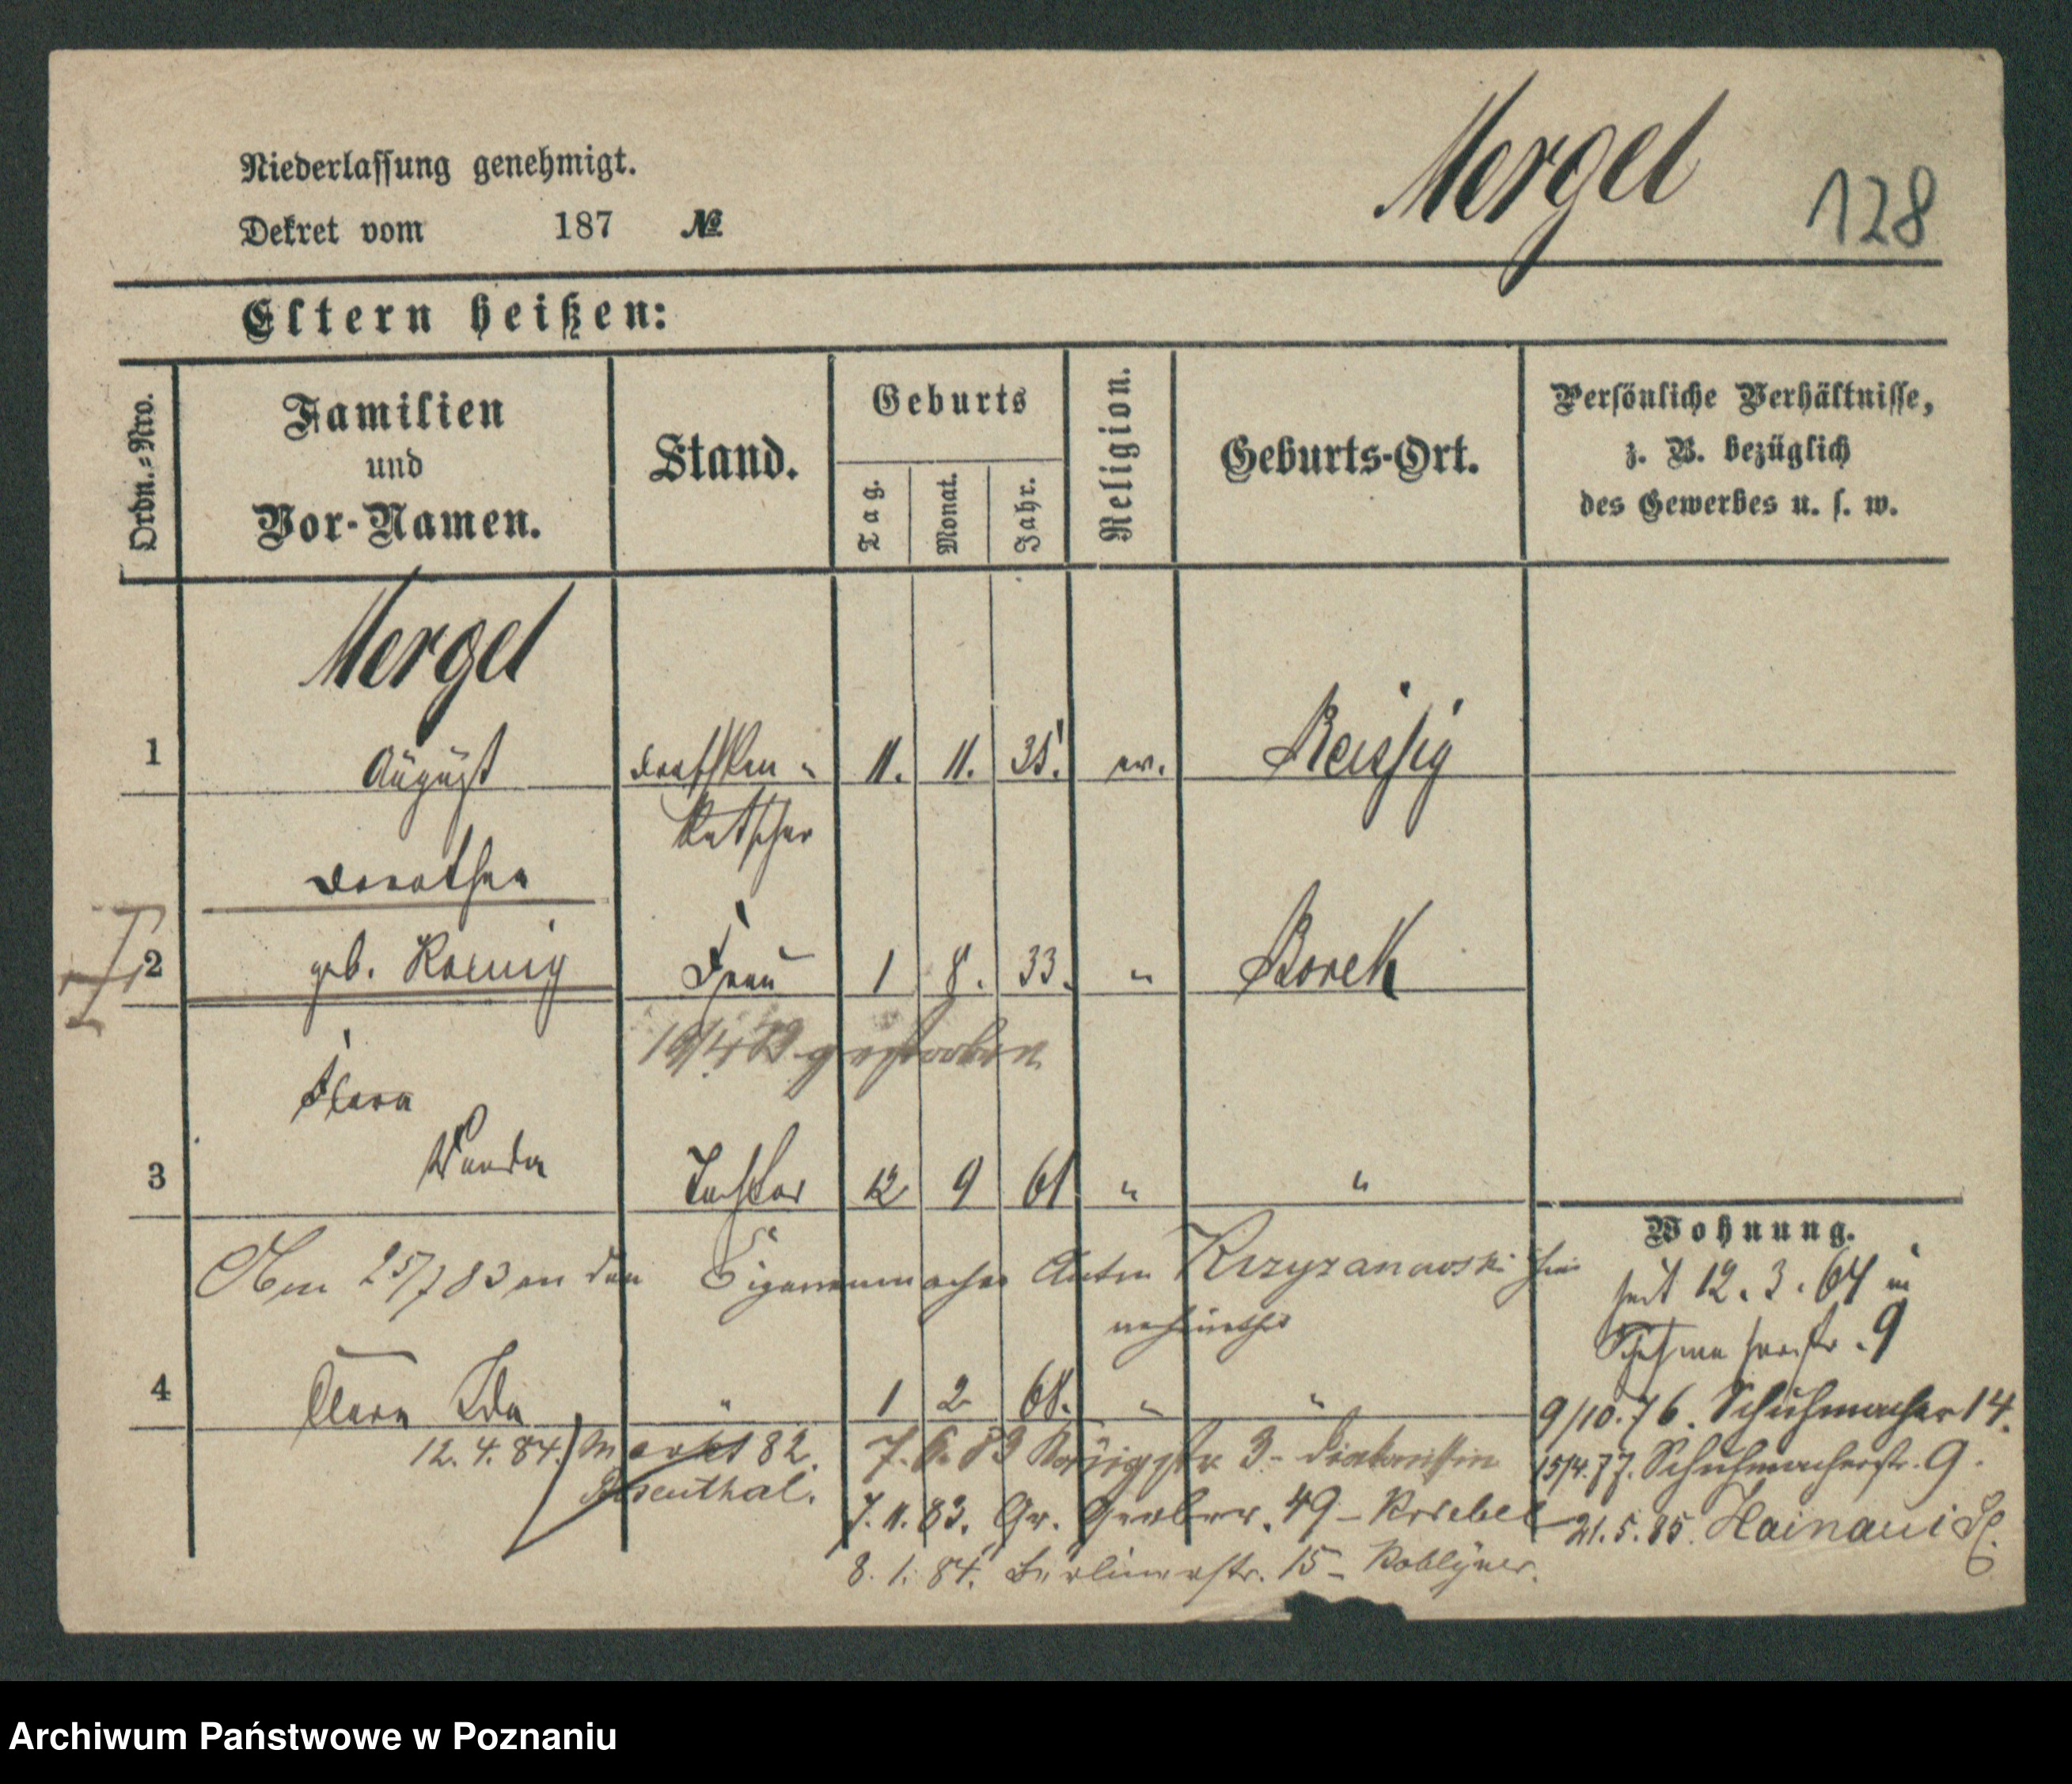 Mergel
128
Niederlassung genehmigt.
Dekret vom 187 №
Eltern heißen:
Ordn.-Nro.
Familien und Vor-Namen.
Stand.
Geburts
Tag.
Monat.
Jahr.
Religion.
Geburts-Ort.
Persönliche Verhältnisse,
z. B. bezüglich
des Gewerbes u. s. w.
Mergel
1 August Droschken- 11. 11. 35. ev. Reissig
Kutscher
Dorothea
2 geb. Koenig Frau 1 8. 33. " Borek
gestorben
Clara
Wanda
3 Tochter 12 9 61 " "
Am 25/7 83 an den Cigarrenmacher Anton Krzyzanowski hier
verheirathet
4 Clara Ida " 1 2 68. " "
12.4.84. Markt 82.
Rosenthal.
7. 6. 83 Königstr 3 - Diakonissin
7. 11. 83. Gr. Gerber. 49 -
8. 1. 84. Berlinerstr. 15 -
Wohnung.
seit 12. 3. 64 in
Schuhmacherstr. 9
9/10. 76. Schuhmacher 14.
15/4. 77. Schuhmacherstr. 9.
21. 5. 85.
Archiwum Państwowe w Poznaniu